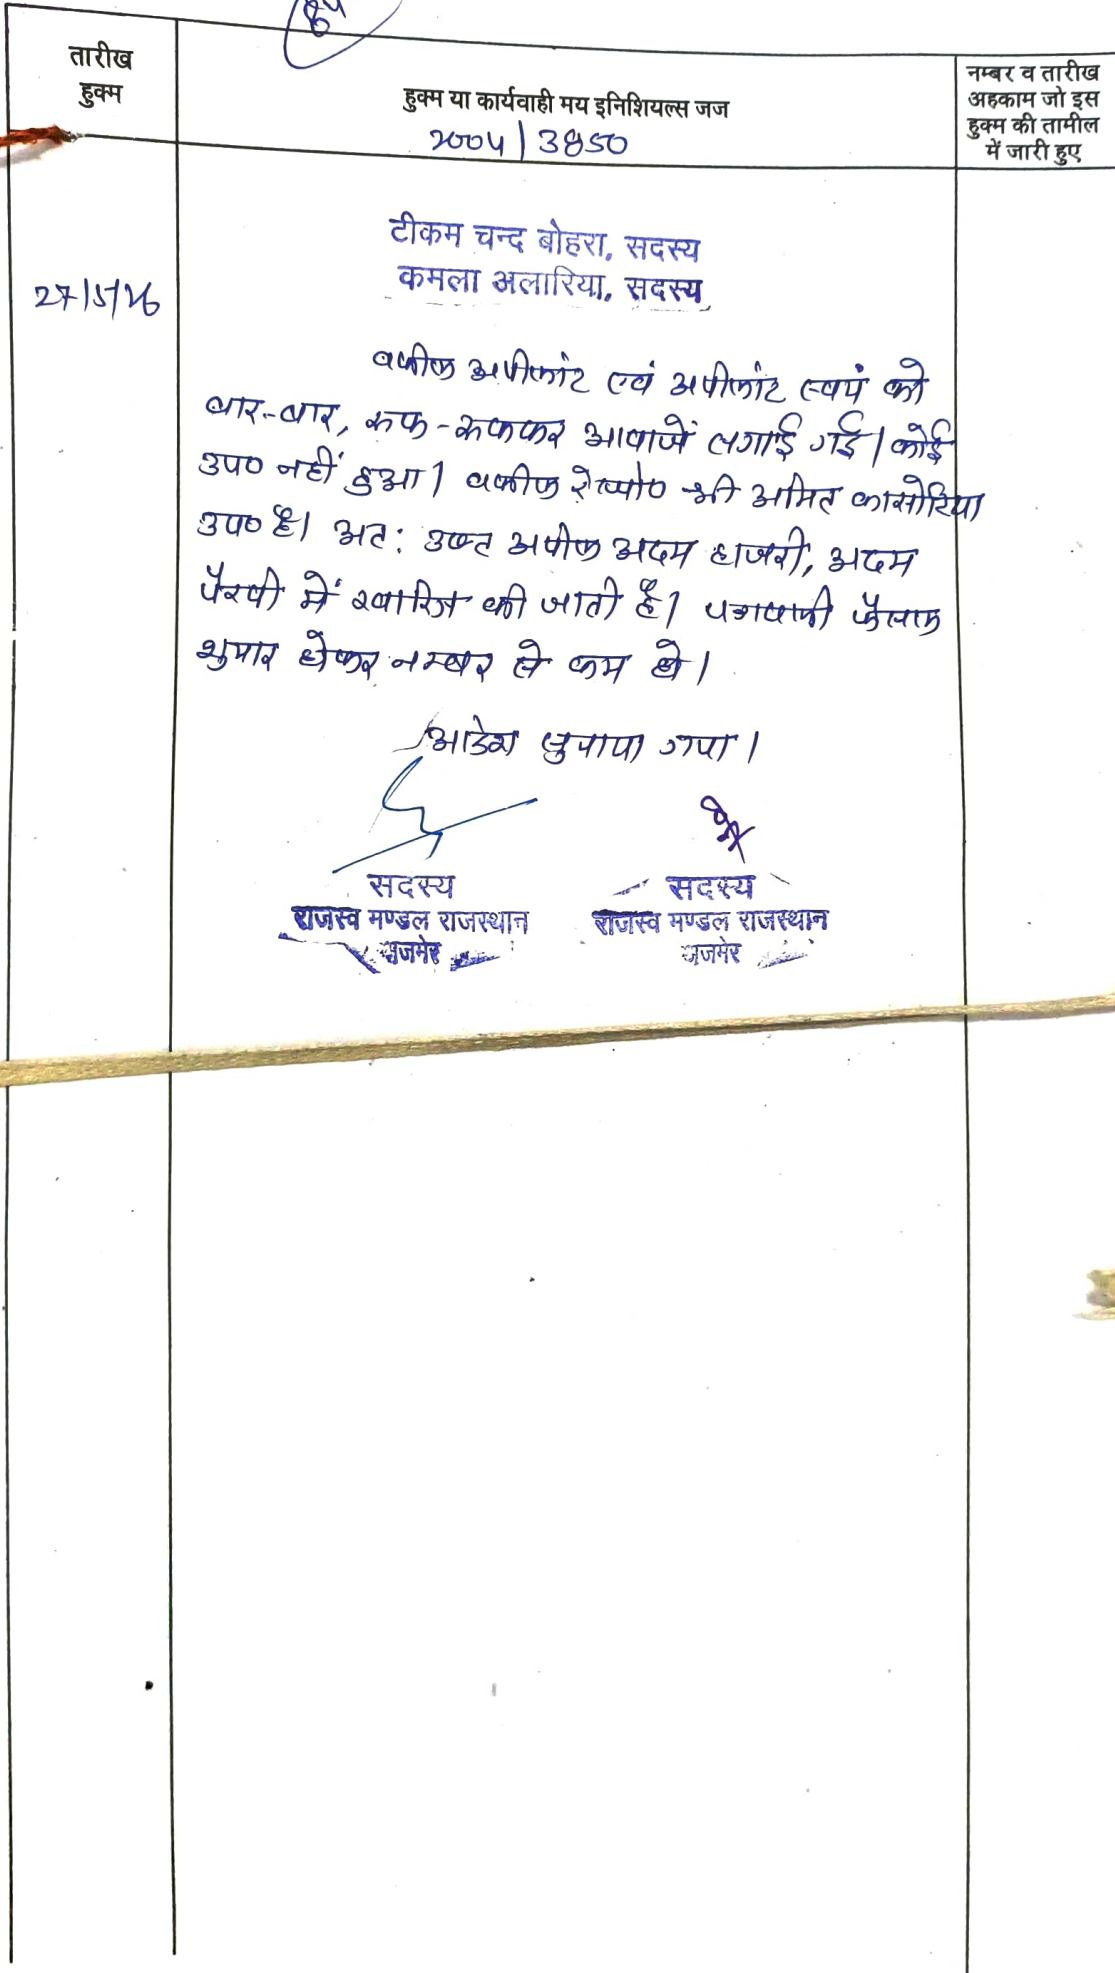 तारीख
हुक्म
हुक्म या कार्यवाही मय इनिशियल्स जज
2004/3450
नम्बर व तारीख
अहकाम जो इस
हुक्म की तामील
में जारी हुए
टीकम चन्द बोहरा, सदस्य
कमला अलारिया, सदस्य
27/5/26
वकील अपीलांट एवं अपीलांट स्वयं को
बार-बार, रूक-रूककर आवाजें लगाई गई। कोई
उप० नहीं हुआ। वकील रेस्पो० श्री अमित कासोटिया
उप० है। अतः उक्त अपील अदम हाजरी, अदम
पैरवी में खारिज की जाती है। पत्रावली फैसल
शुमार होकर नम्बर से कम हो।
आदेश सुनाया गया।
सदस्य
राजस्व मण्डल राजस्थान
अजमेर
सदस्य
राजस्व मण्डल राजस्थान
अजमेर